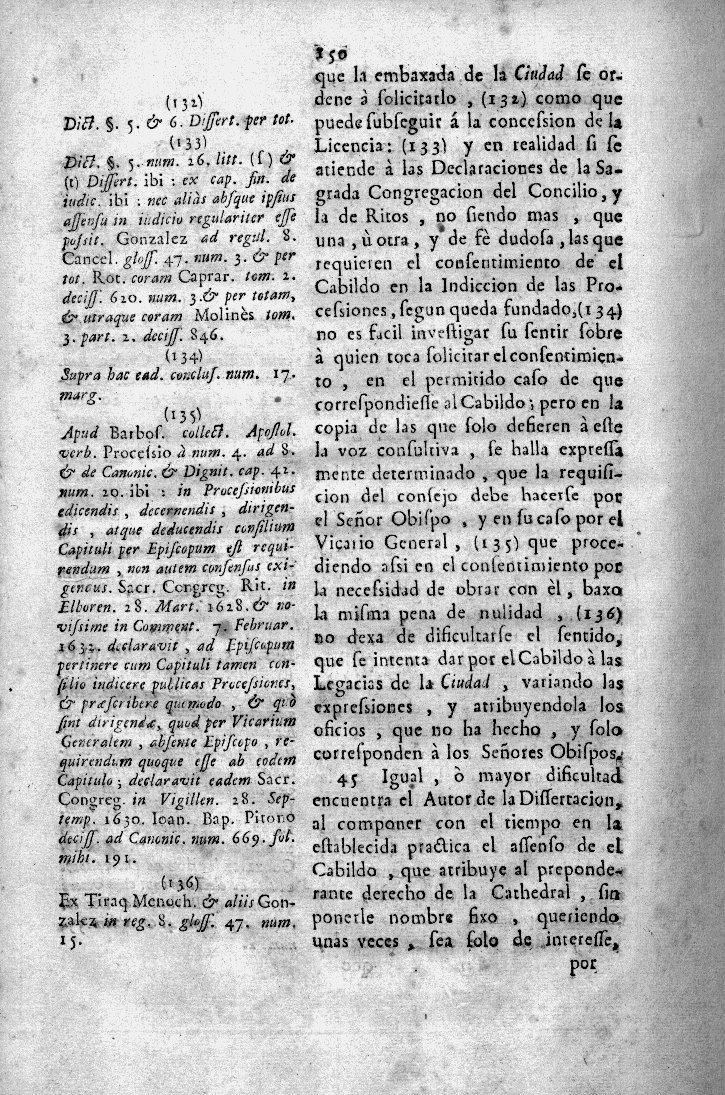 150
(132)
Dict. §. 5. & 6. Dissert. per tot.
(133)
Dict. §. 5. num. 26. litt. (s) &
(t) Dissert. ibi : ex cap. fin. de
iudic. ibi : nec aliàs absque ipsius
assensu in iudicio regulariter esse
possit. Gonzalez ad regul. 8.
Cancel. gloss. 47. num. 3. & per
tot. Rot. coram Caprar. tom. 2.
deciss. 620. num. 3. & per totam,
& utraque coram Molinès tom.
3. part. 2. deciss. 846.
(134)
Supra hac ead. conclus. num. 17.
marg.
(135)
Apud Barbos. collect. Apostol.
verb. Processio à num. 4. ad 8.
& de Canonic. & Dignit. cap. 42.
num. 20. ibi : in Processionibus
edicendis , decernendis , dirigen-
dis , atque deducendis consilium
Capituli per Episcopum est requi-
rendum , non autem consensus exi-
gendus. Sacr. Congreg. Rit. in
Elboren. 28. Mart. 1628. & no-
vissime in Comment. 7. Februar.
1632. declaravit , ad Episcopum
pertinere cum Capituli tamen con-
silio indicere publicas Processiones,
& præscribere quomodo , & quò
sint dirigendæ, quod per Vicarium
Generalem , absente Episcopo , re-
quirendum quoque esse ab eodem
Capitulo ; declaravit eadem Sacr.
Congreg. in Vigillen. 28. Sep-
temp. 1630. Ioan. Bap. Pitono
deciss. ad Canonic. num. 669. fol.
mihi. 191.
(136)
Ex Tiraq Menoch. & aliis Gon-
zalez in reg. 8. gloss. 47. num.
15.
que la embaxada de la Ciudad se or-
dene à solicitarlo , (132) como que
puede subseguir á la concession de la
Licencia: (133) y en realidad si se
atiende à las Declaraciones de la Sa-
grada Congregacion del Concilio, y
la de Ritos , no siendo mas , que
una , ù otra , y de fè dudosa , las que
requieren el consentimiento de el
Cabildo en la Indiccion de las Pro-
cessiones, segun queda fundado,(134)
no es facil investigar su sentir sobre
à quien toca solicitar el consentimien-
to , en el permitido caso de que
correspondiesse al Cabildo ; pero en la
copia de las que solo defieren à este
la voz consultiva , se halla expressa
mente determinado , que la requisi-
cion del consejo debe hacerse por
el Señor Obispo , y en su caso por el
Vicario General , (135) que proce-
diendo assi en el consentimiento por
la necessidad de obrar con èl , baxo
la misma pena de nulidad , (136)
no dexa de dificultarse el sentido,
que se intenta dar por el Cabildo à las
Legacias de la Ciudad , variando las
expressiones , y atribuyendola los
oficios , que no ha hecho , y solo
corresponden à los Señores Obispos.
45 Igual , ò mayor dificultad
encuentra el Autor de la Dissertacion,
al componer con el tiempo en la
establecida practica el assenso de el
Cabildo , que atribuye al preponde-
rante derecho de la Cathedral , sin
ponerle nombre fixo , queriendo
unas veces , sea solo de interesse,
por